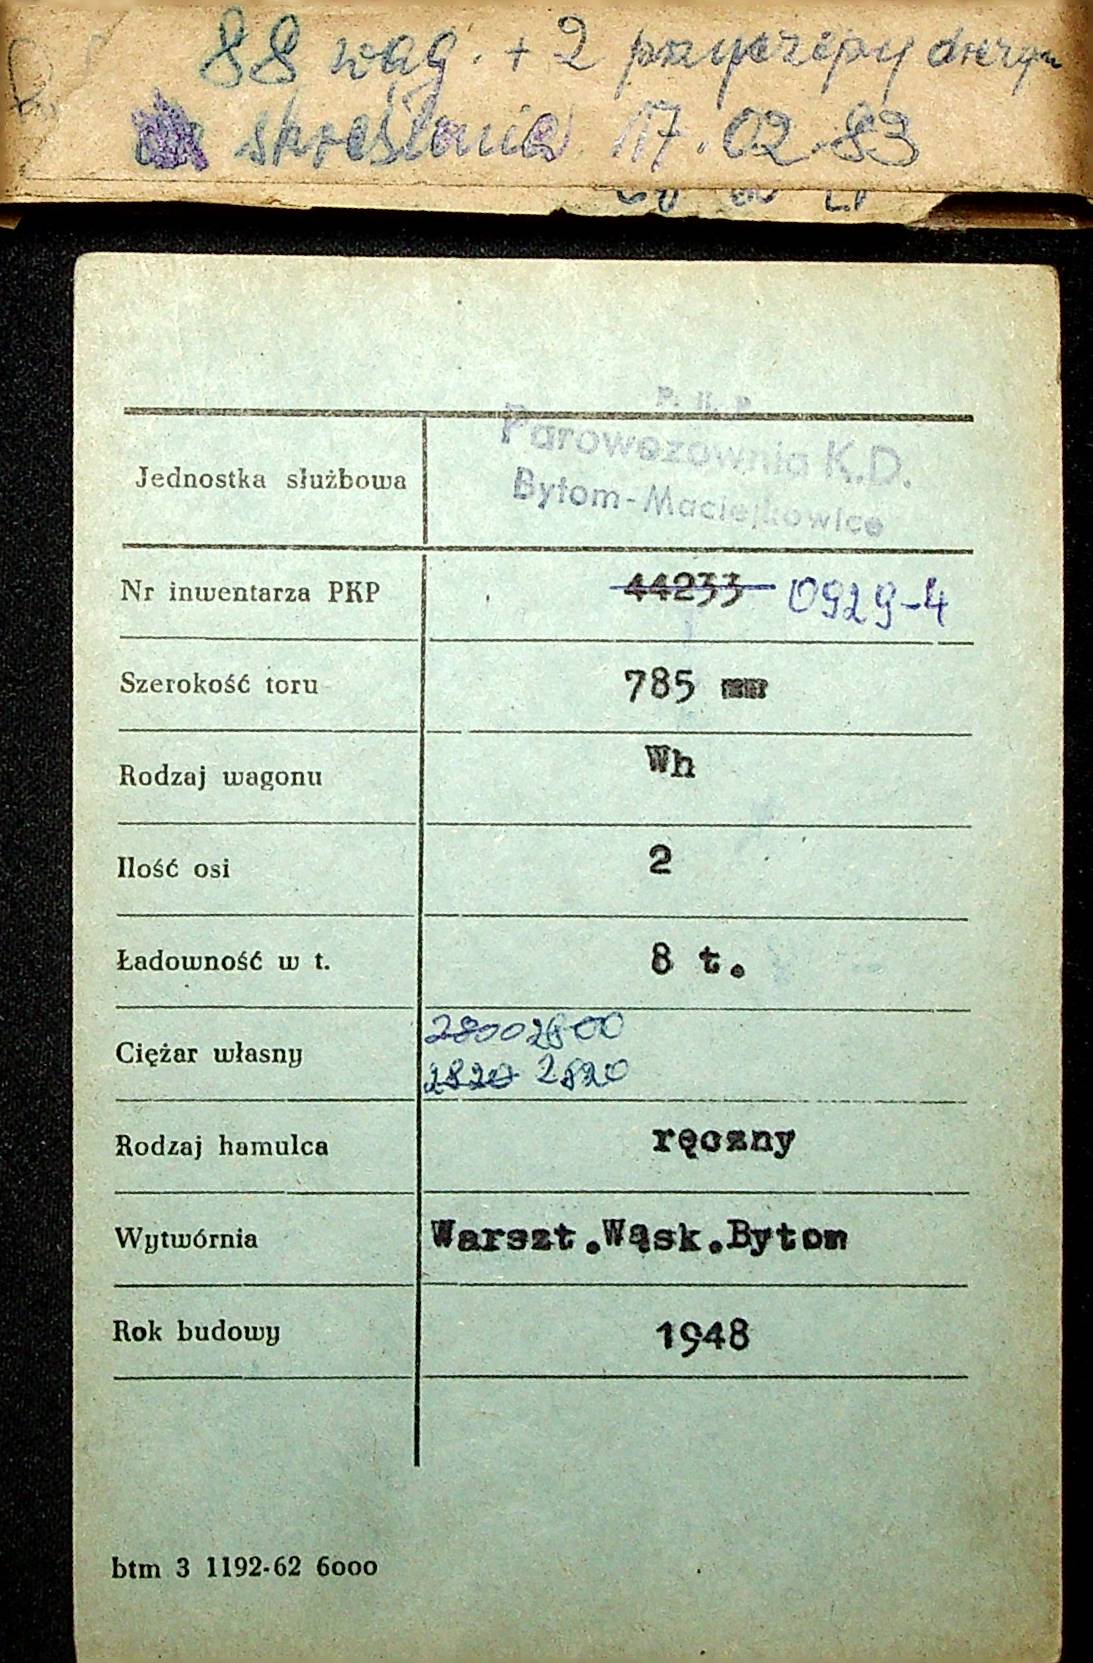 88 wag. + 2 przyczepy drezyn
skreślenia 17.02.83
P. K. P.
Parowozownia K.D.
Bytom-Maciejkowice
Jednostka służbowa
Nr inwentarza PKP 44233 0929-4
Szerokość toru 785 mm
Rodzaj wagonu Wh
Ilość osi 2
Ładowność w t. 8 t.
2800 2800
Ciężar własny
2820 2820
Rodzaj hamulca ręczny
Wytwórnia Warszt.Wąsk.Bytom
Rok budowy 1948
btm 3 1192-62 6000